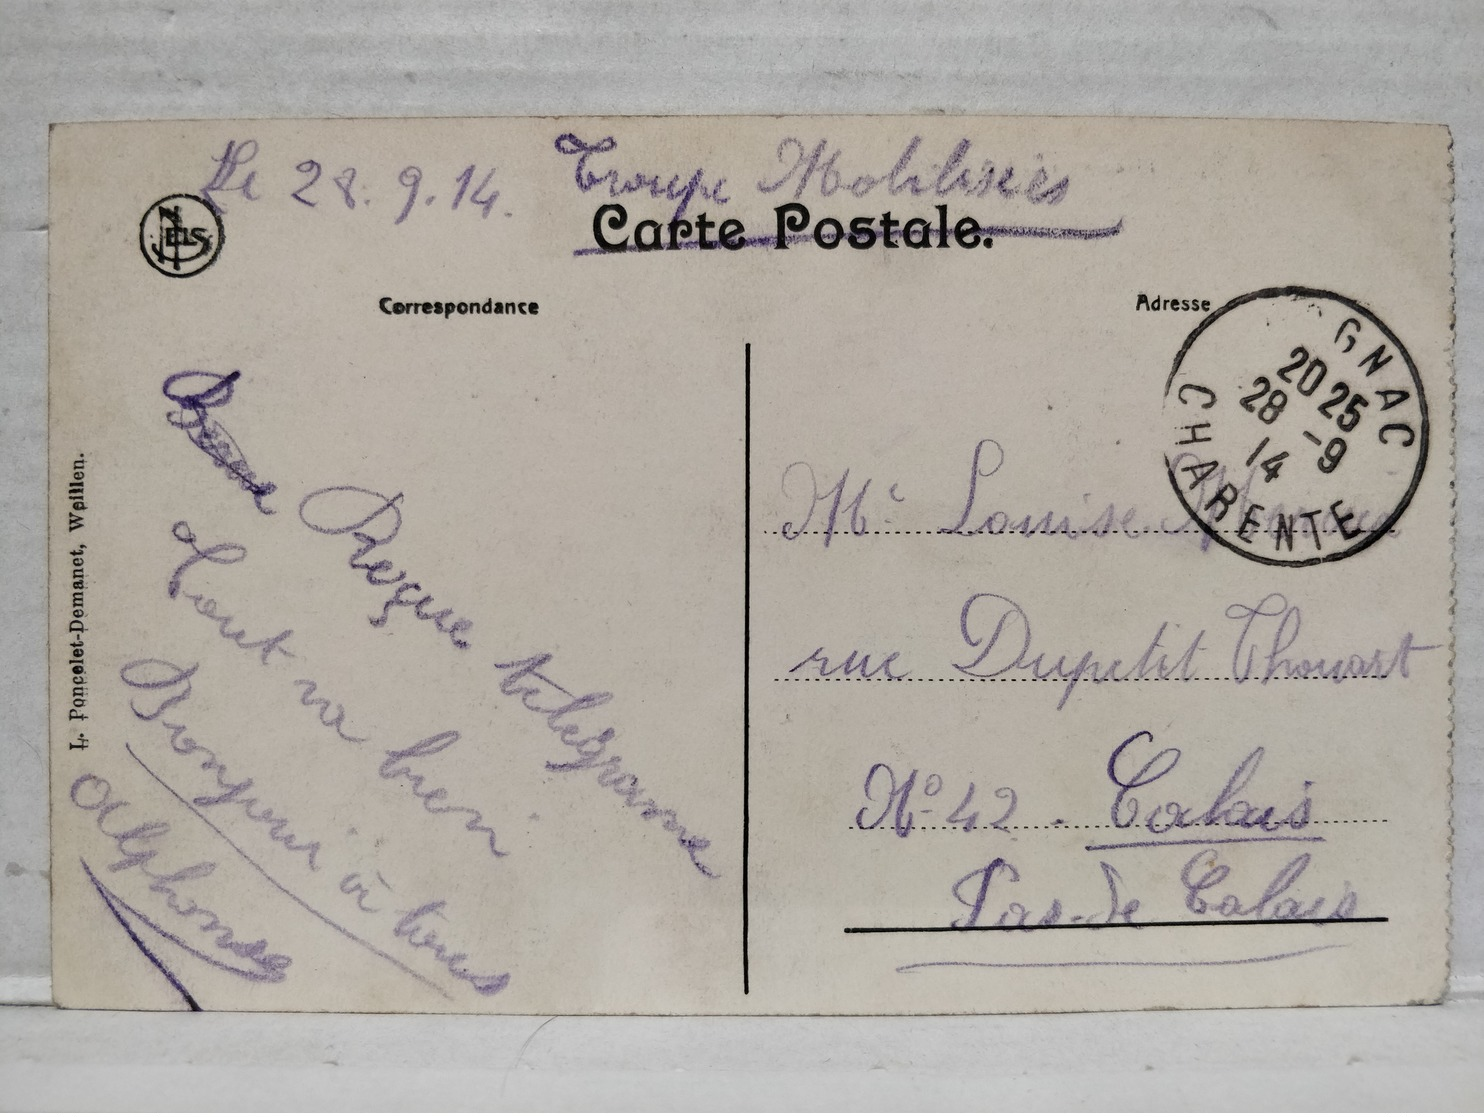 Le 28.9.14. Troupe Mobilisées
Carte Postale.
NELS
Correspondance
Adresse
GNAC
20 25
28 -9
14
CHARENTE
Reçue télégrame
Tout va bien
Bonjour à tous
Alphonse
Me Louise
rue Dupetit Thouart
No 42. Calais
Pas-de Calais
L. Poncelet-Demanet, Wpillen.